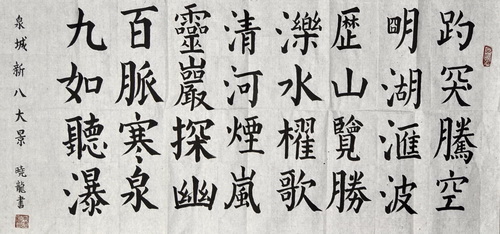 趵突騰空
明湖滙波
歷山覽勝
濼水櫂歌
清河煙嵐
靈巖探幽
百脈寒泉
九如聽瀑
泉城新八大景 曉龍書